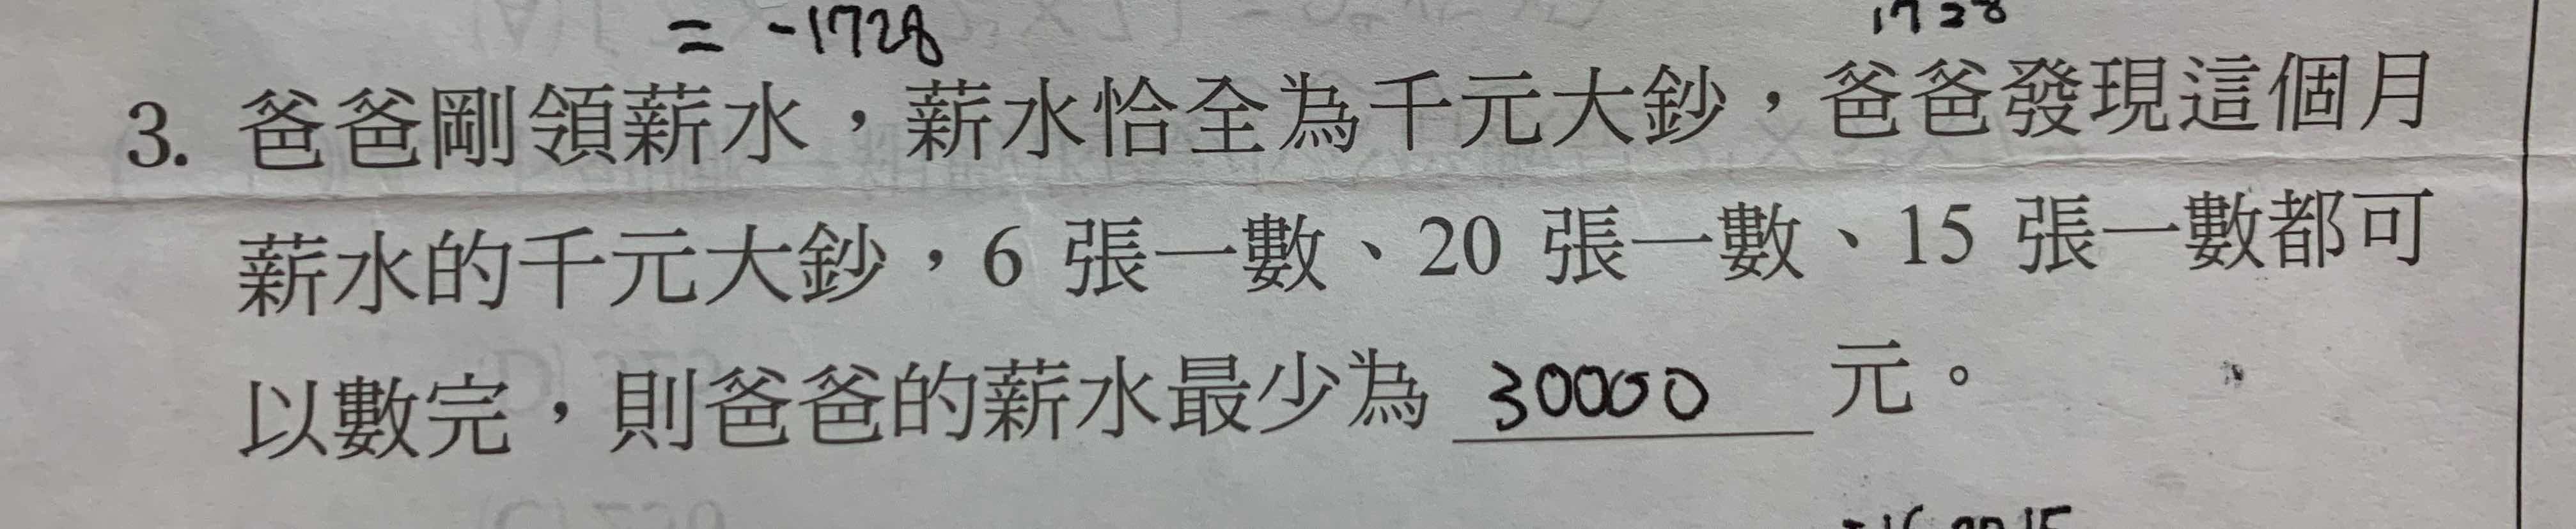 = -1728 1728
3. 爸爸剛領薪水，薪水恰全為千元大鈔，爸爸發現這個月
薪水的千元大鈔，6 張一數、20 張一數、15 張一數都可
以數完，則爸爸的薪水最少為 30000 元。